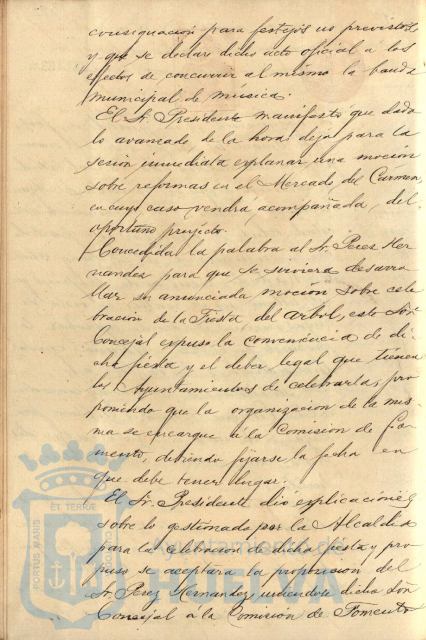 consignación para festejos no previstos
y que se declare dicho acto oficial a los
efectos de concurrir al mismo la banda
municipal de música.
El Sr. Presidente manifestó que dado
lo avanzado de la hora deja para la
sesión inmediata explanar una moción
sobre reformas en el Mercado del Carmen,
en cuyo caso vendrá acompañada del
oportuno proyecto.
Concedida la palabra al Sr. Perez Her
nandez para que se sirviera desarro
llar su anunciada moción sobre cele
bración de la Fiesta del arbol, este Sor.
Concejal expuso la conveniencia de di
cha fiesta y el deber legal que tienen
los Ayuntamientos de celebrarla, pro
poniendo que la organización de la mis
ma se encargue á la Comisión de Fo
mento, debiendo fijarse la fecha en
que debe tener lugar.
El Sr. Presidente dió explicaciones
sobre lo gestionado por la Alcaldia
para la celebración de dicha fiesta y pro
puso se aceptara la proposición del
Sr. Perez Hernandez, uniendose dicho Sor.
Concejal á la Comisión de Fomento
PORTUS MARIS ET TERRÆ CUSTODIA
Ayuntamiento de
HUELVA